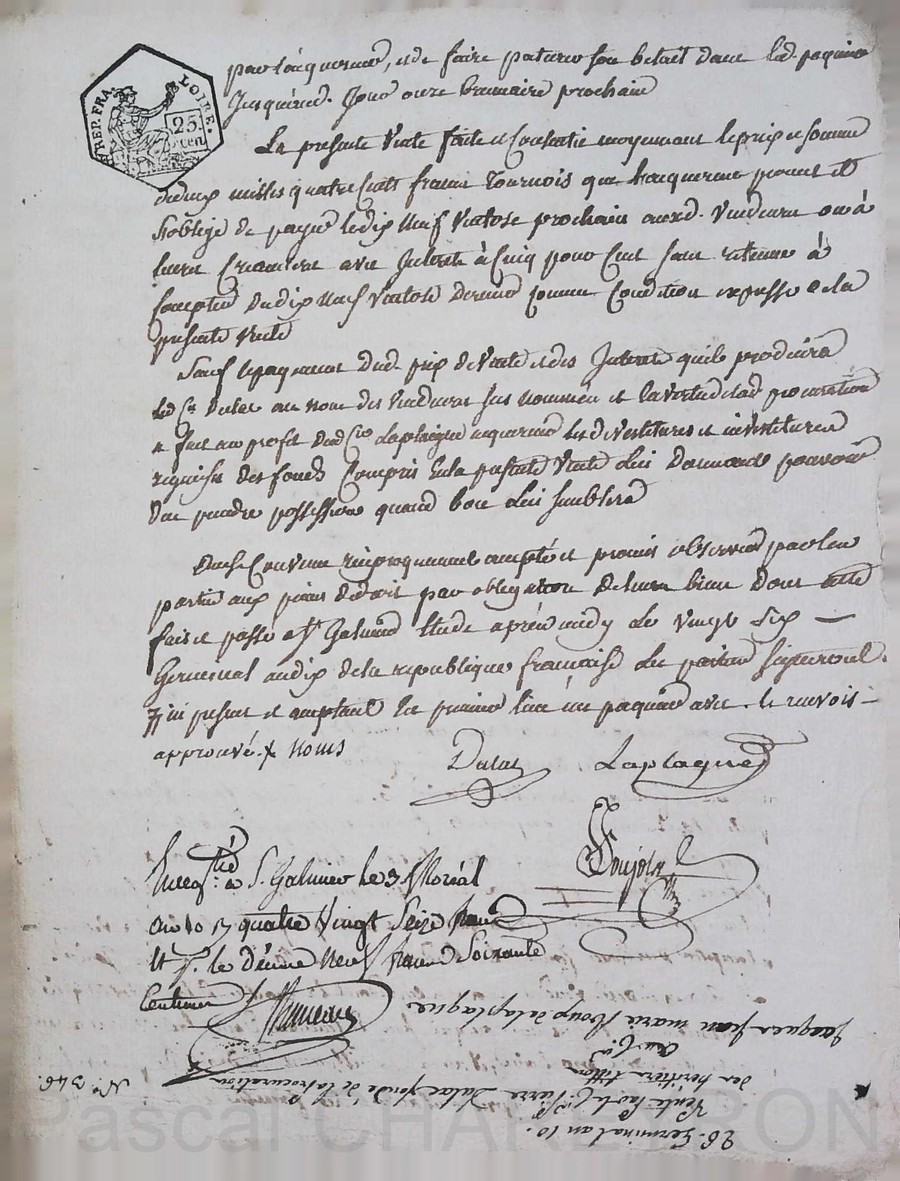 REP. FRA. LOIRE.
25. cen
par l'acquereur, et de faire paturer son betail dans led. paquier
jusqu'aud. jour onze brumaire prochain
La presente vente faite et Consentie moyennant le prix et somme
de deux milles quatre Cents francs Tournois que l'acquereur promet et
s'oblige de payer le dix neuf Ventose prochain auxd. Vendeurs ou à
leurs Creanciers avec Interets à Cinq pour Cent sans retenue à
Compter du dix neuf Ventose dernier comme Condition expresse de la
presente vente
Sauf le payement dud. prix de Vente et des Interets qu'il produira
led. Cn. Dulac au nom des Vendeurs sus nommés et en vertu de lad. procuration
a fait au profit dud. Cn. Laplagne acquereur les divestitures et investitures
requises des fonds Compris En la presente Vente lui Donnant pouvoir
d'en prendre possession quand bon lui semblera
Ainsi Convenu reciproquement accepté et promis observer par les
parties aux peines de droit par obligation de leurs biens Dont acte
fait et passé a St. Galmier Etude après midy le vingt six —
Germinal an dix de la republique française les parties
approuvé. x nous
Dulac Laplagne
Poujol
Enregistré à S. Galmier le 3 floréal
an 10 R quatre Vingt Seize francs
Et p. le Décime neuf francs Soixante
Centimes
26. Germinal an 10.
Vente par le Cn. Pierre Dulac fondé de la procuration
des heritiers
au Cn.
Jacques jean marie Laplagne
No. 346.
Pascal CHAMBRON